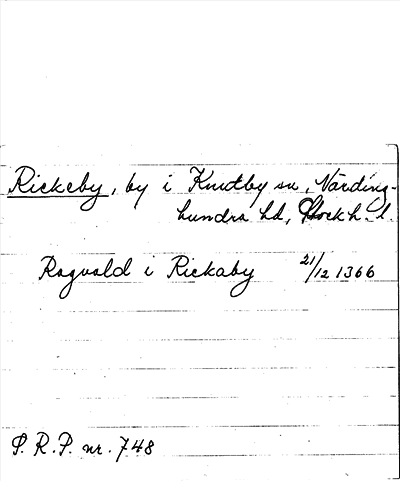 Rickeby, by i Knutby sn, Närding-
hundra hd, Stockh. l.
Ragvald i Rickaby 21/12 1366
S. R. P. nr. 748